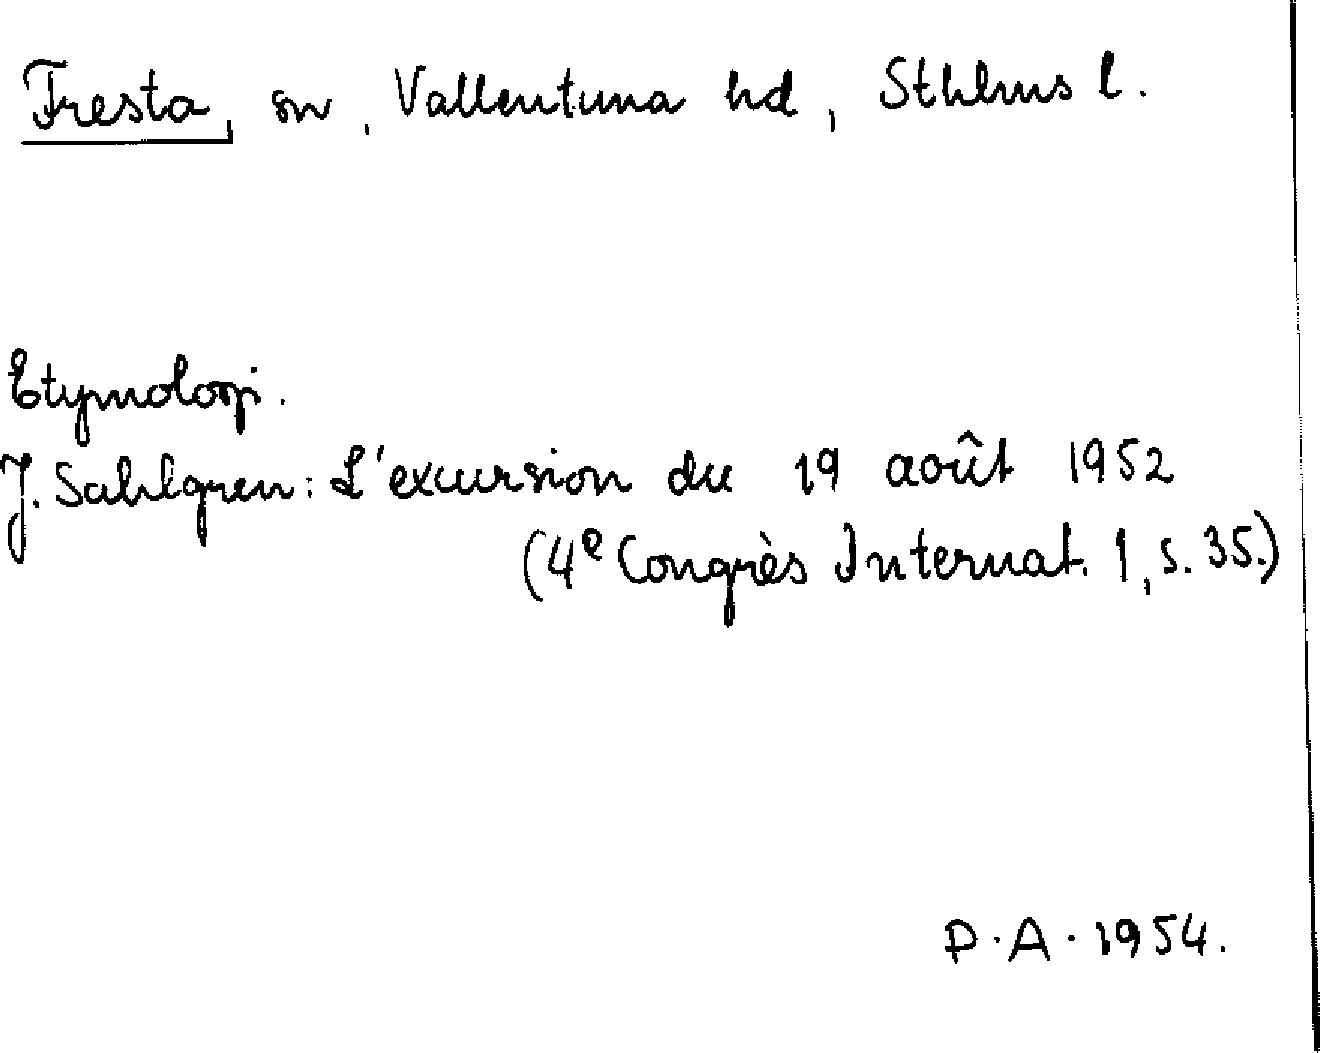 Fresta, sn, Vallentuna hd, Sthlms l.
Etymologi.
J. Sahlgren: L'excursion du 19 août 1952
(4e Congrès Internat. 1, s. 35.)
P.A. 1954.